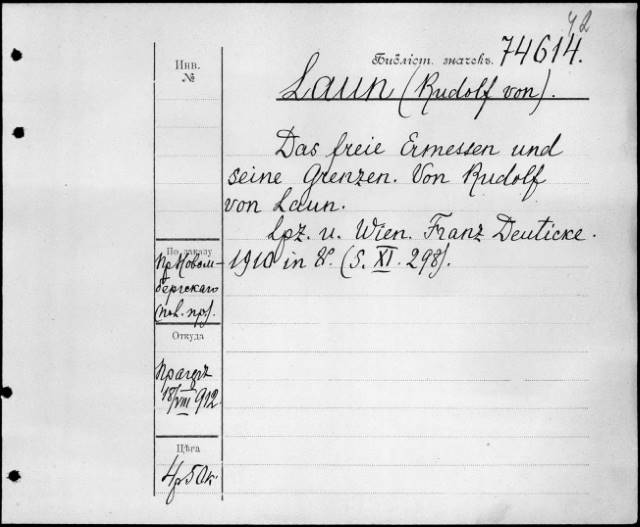 42
Библіот. значекъ. 74614.
Инв.
№
Laun (Rudolf von).
Das freie Ermessen und
seine Grenzen. Von Rudolf
von Laun.
Lpz. u. Wien. Franz Deuticke.
1910 in 8º. (S. XI. 298).
По заказу
пр. Новом-
бергскаго
Откуда
18/VIII 912
Цѣна
4р50к.